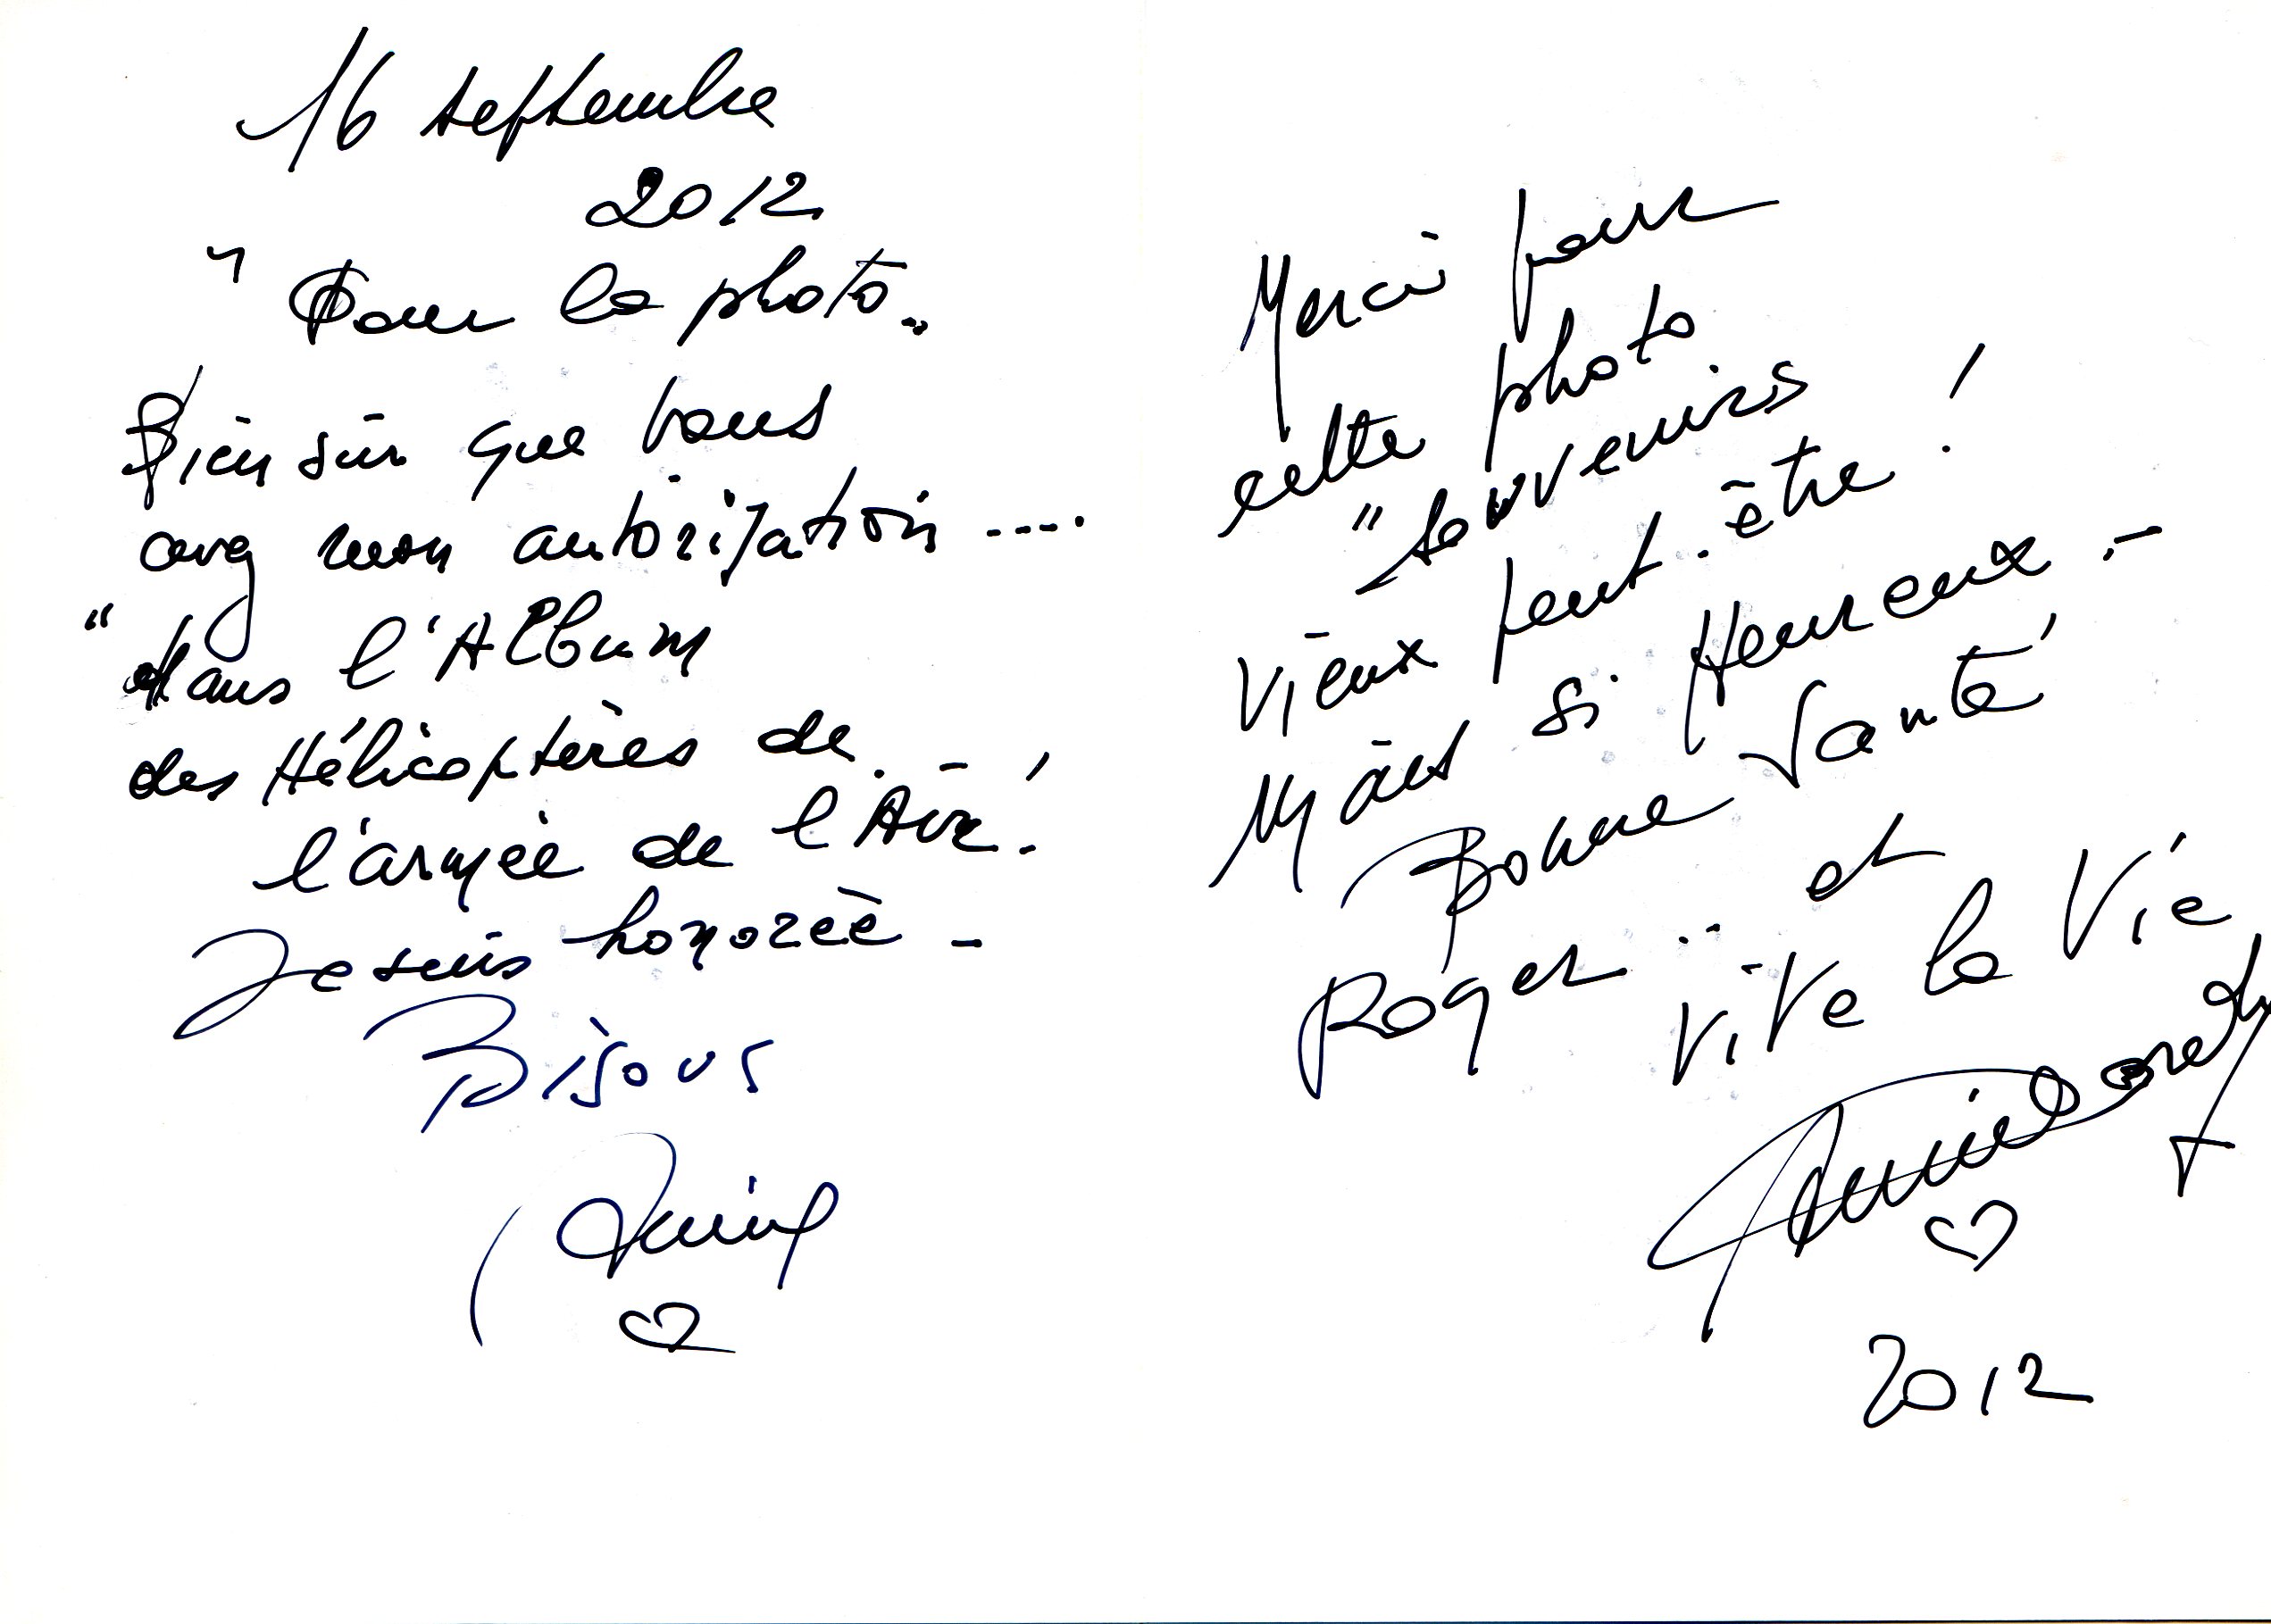 16 septembre
2012
" Pour la photo..
Bien sûr que vous
avez mon autorisation ....
" dans l'Album
des Hélicoptères de
l'armée de l'Air !
Je suis honorée -
Bisous
Annie
Merci pour
cette photo
" souvenirs
vieux peut-être !
Mais si Heureux -
Bonne Santé
Roger .. et
Vive la Vie
Annie Cordy
2012